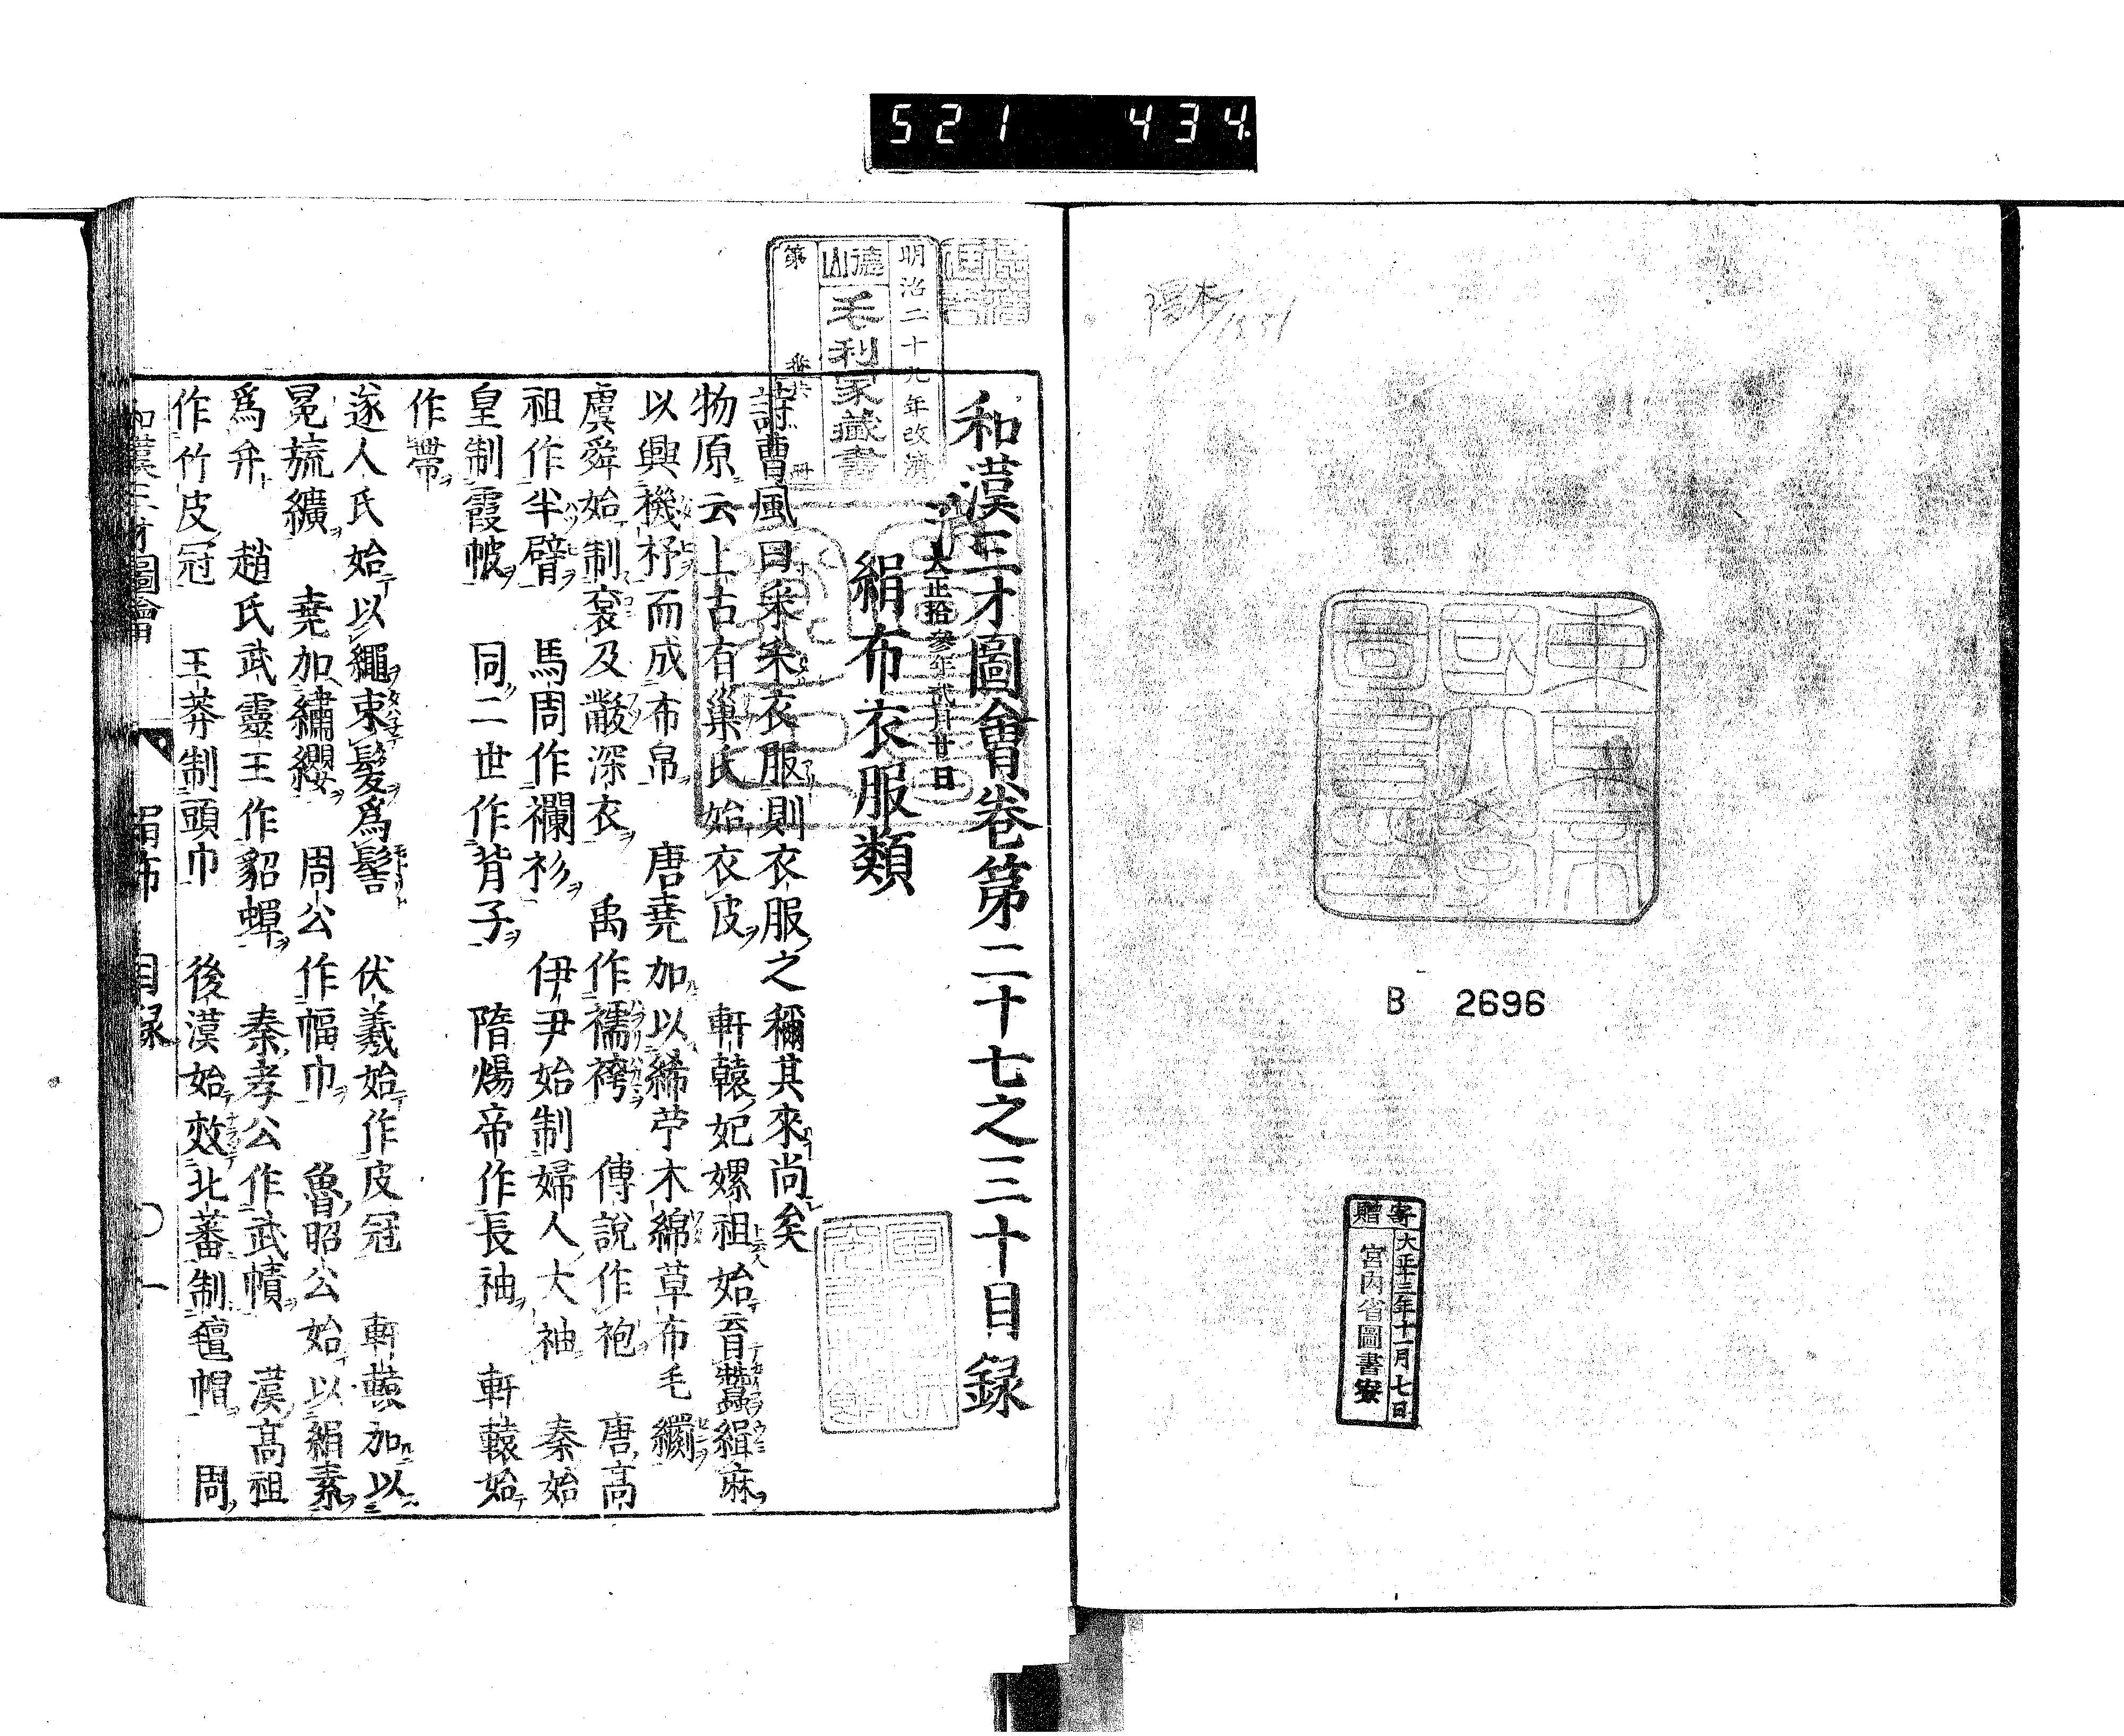 521 434
東京帝國大學圖書印
B 2696
寄贈
大正十三年十一月七日
宮内省圖書寮
明治二十九年改濟
德山
毛利家藏書
第
冊
大正拾參年貳月廿日
和漢三才圖會卷第二十七之三十目録
絹布衣服類
詩曹風曰采采衣服則衣服之稱其來尚矣
物原云上古有巢氏始衣皮 軒轅妃嫘祖始育蠶緝麻
以興機杼而成布帛 唐堯加以絺苧木綿草布毛罽
虞舜始制衮及黻深衣 禹作襦袴 傳說作袍 唐高
祖作半臂 馬周作襴衫 伊尹始制婦人大袖 秦始
皇制霞帔 同二世作背子 隋煬帝作長袖 軒轅始
作帶
遂人氏始以繩束髮爲髻 伏羲始作皮冠 軒轅加以
冕旒纊 堯加繡纓 周公作幅巾 魯昭公始以絹素
爲弁 趙氏武靈王作貂蟬 秦孝公作武幘 漢高祖
作竹皮冠 王莽制頭巾 後漢始效北蕃制氊帽 周
和漢三才圖會 絹布 目録 ○ 一